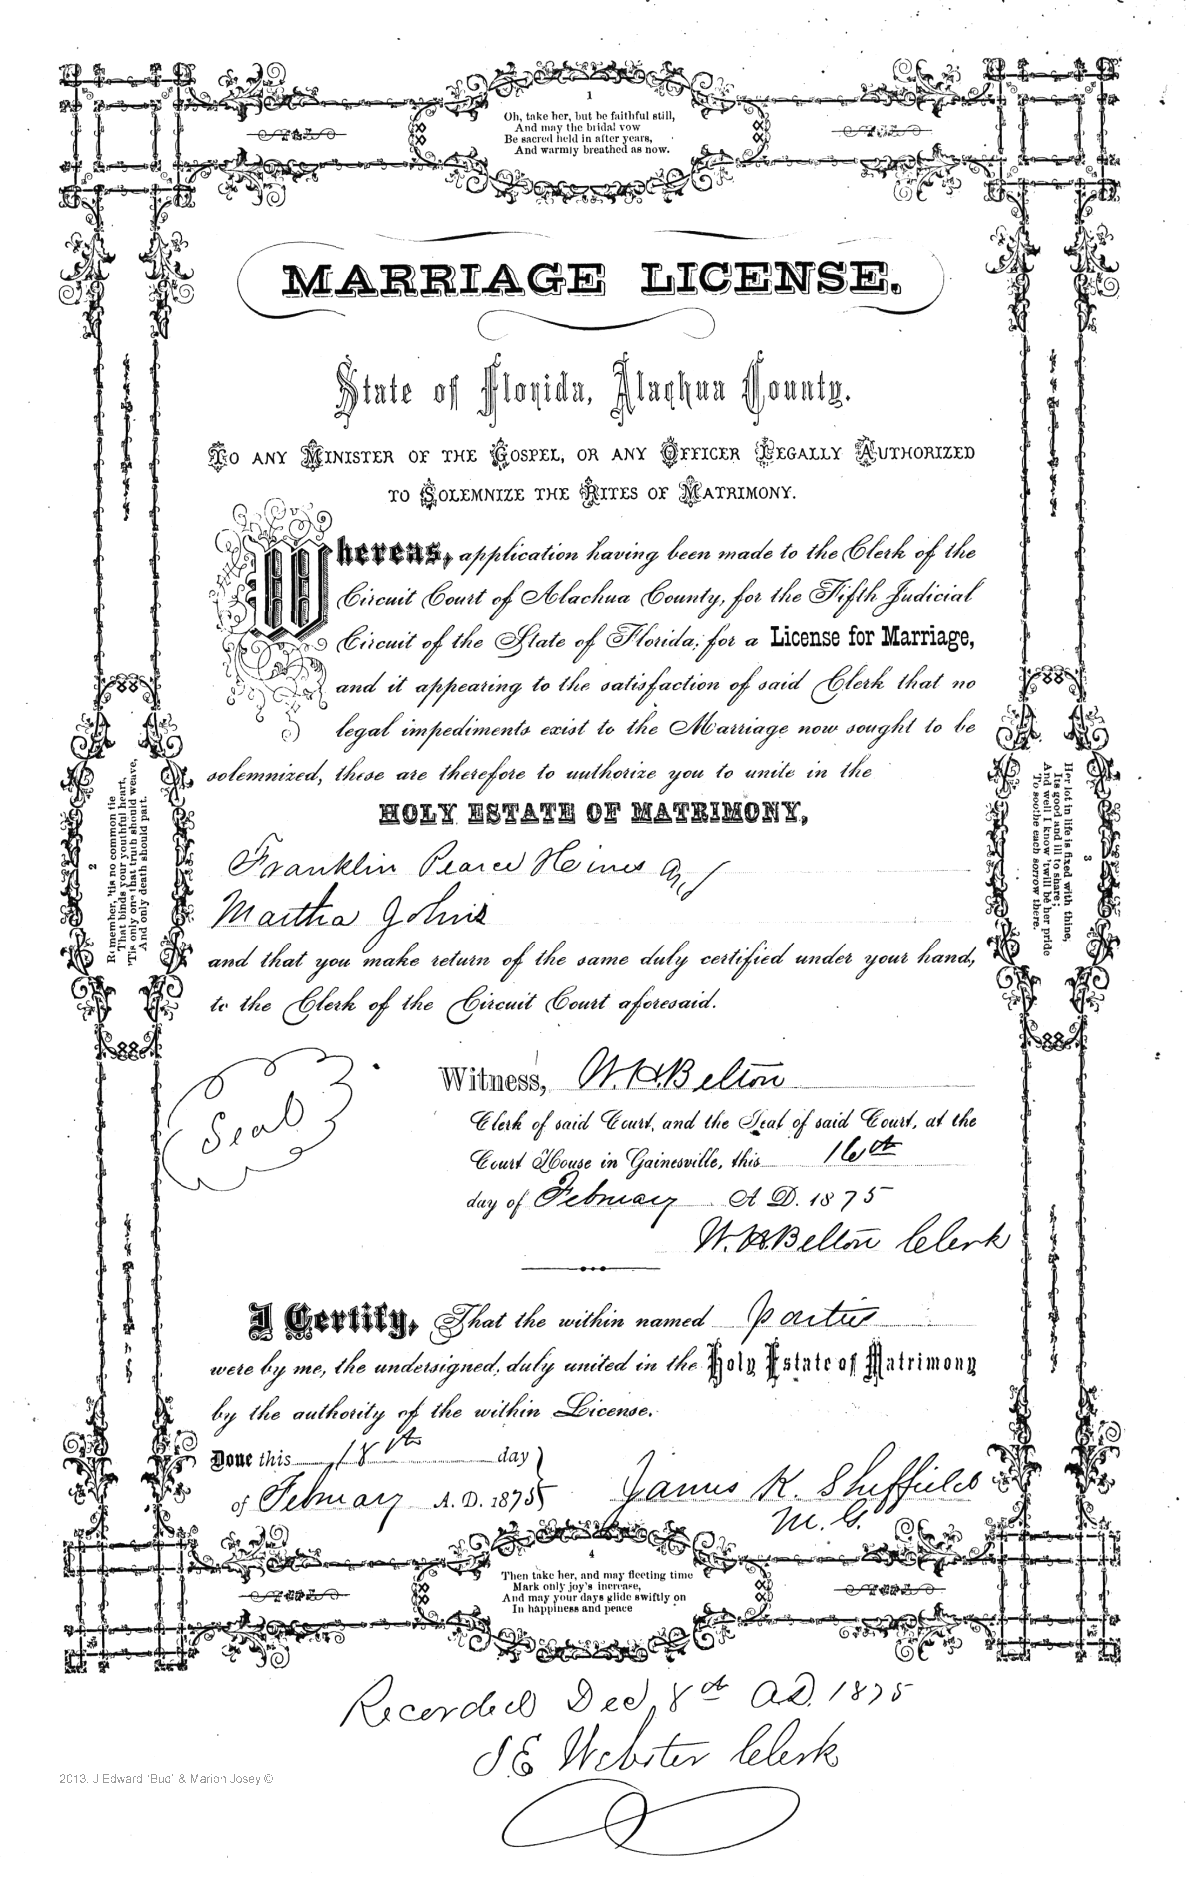 1
Oh, take her, but be faithful still,
And may the bridal vow
Be sacred held in after years,
And warmly breathed as now.
MARRIAGE LICENSE.
State of Florida, Alachua County.
TO ANY MINISTER OF THE GOSPEL, OR ANY OFFICER LEGALLY AUTHORIZED
TO SOLEMNIZE THE RITES OF MATRIMONY.
Whereas, application having been made to the Clerk of the
Circuit Court of Alachua County, for the Fifth Judicial
Circuit of the State of Florida, for a License for Marriage,
and it appearing to the satisfaction of said Clerk that no
legal impediments exist to the Marriage now sought to be
solemnized, these are therefore to authorize you to unite in the
HOLY ESTATE OF MATRIMONY,
Franklin Pearce Hines and
Martha Johns
and that you make return of the same duly certified under your hand,
to the Clerk of the Circuit Court aforesaid.
2
Remember, 'tis no common tie
That binds your youthful heart,
'Tis only one that truth should weave,
And only death should part.
3
Her lot in life is fixed with thine,
Its good and ill to share;
And well I know 'twill be her pride
To soothe each sorrow there.
Seal
Witness, W. H. Belton
Clerk of said Court, and the Seal of said Court, at the
Court House in Gainesville, this 16th
day of February A D. 1875
W. H. Belton Clerk
I Certify, That the within named parties
were by me, the undersigned, duly united in the Holy Estate of Matrimony
by the authority of the within License.
Done this 18th day
of February A. D. 1875
James K. Sheffield
M. G.
4
Then take her, and may fleeting time
Mark only joy's increase,
And may your days glide swiftly on
In happiness and peace
Recorded Dec 8th AD. 1875
J E Webster Clerk
2013. J Edward 'Bud' & Marion Josey ©